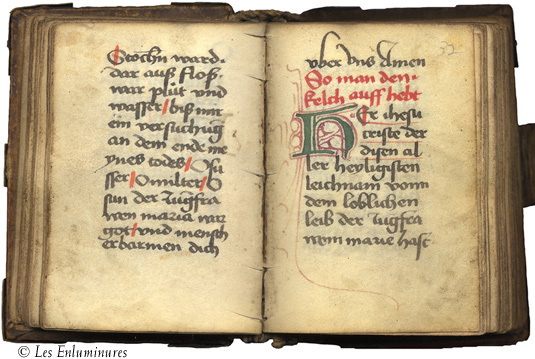 Stochn ward.
dar auß floß
war plut vnd
wasser / biß mir
ein versuchug
an dem ende me
ynes todes / O su
sser / O milter / O
sun der Jūgfra
wen maria war
got / vnd mensch
erbarmen dich
vber vns Amen
So man den
kelch auff hebt
HEr ihesu
criste der
disen al
ler heyligisten
leichnam vonn
dem loblichen
leib der Jūgfra
wenn marie hast
32
© Les Enluminures